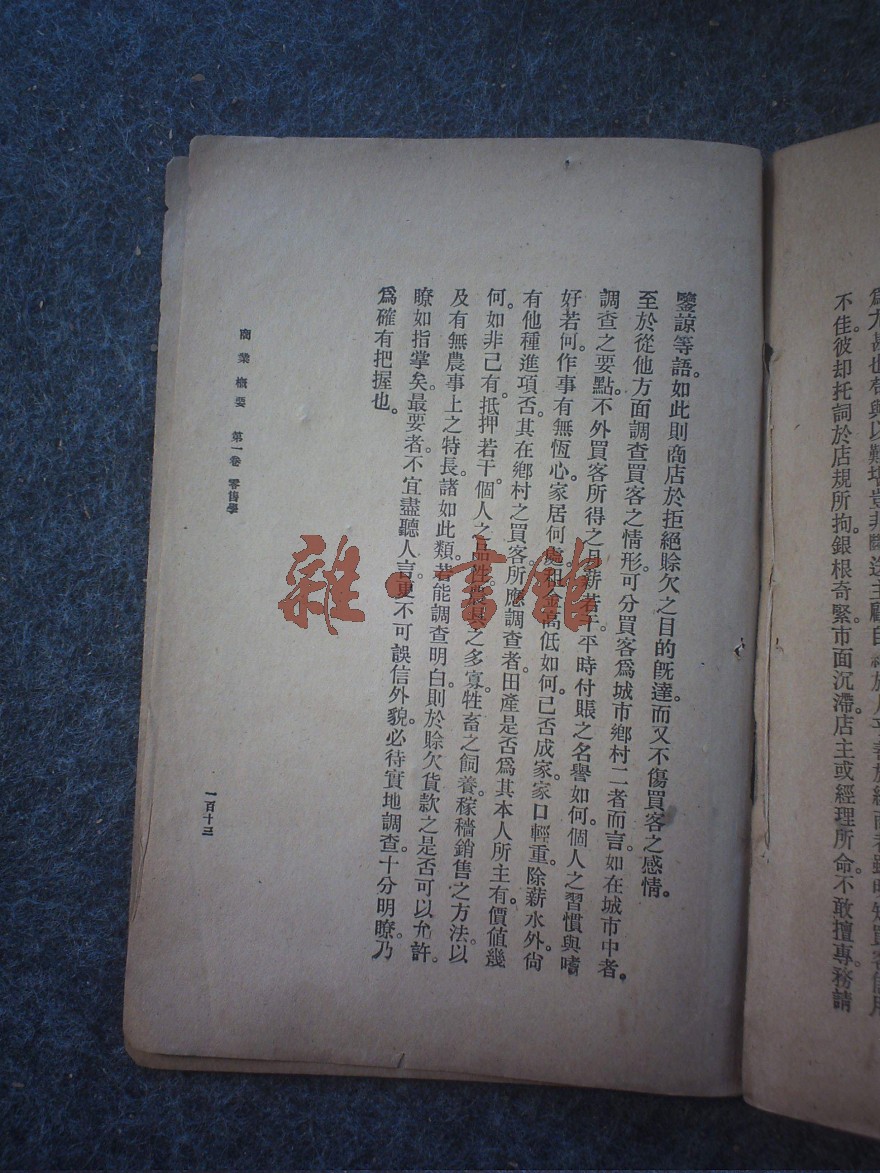 不佳。彼却托詞於店規所拘。銀根奇緊。市面沉滯。店主或經理所命。不敢擅專。務請
鑒諒等語。如此則商店於拒絕賒欠之目的既達。而又不傷買客之感情。
至於從他方面調查買客之情形。可分買客爲城市鄉村二者而言。如在城市中者。
調查之要點。不外買客所得之月薪若干。平時付賬之名譽如何。個人之習慣與嗜
好若何。作事有無恆心。家居何處。租金高低如何。已否成家。家口輕重。除薪水外。尙
有他種進項否。其在鄉村之買客。所應調查者。田產是否爲其本人所主有。價值幾
何。如非己有。抵押若干。個人之品性。農具之多寡。牲畜之飼養。稼穡銷售之方法。以
及有無農事上之特長。諸如此類。若能調查明白。則於賒欠貨款之是否可以允許。
瞭如指掌矣。最要者。不宜盡聽人言。更不可誤信外貌。必待實地調查。十分明瞭。乃
爲確有把握也。
商業概要 第一卷 零售學
一百十三
雜·書館